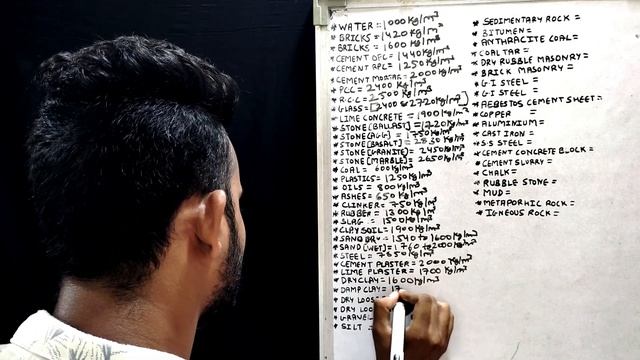 * WATER = 1000Kg/m³
* BRICKS = 1420Kg/m³
* BRICKS = 1600 Kg/m³
* CEMENT OPC = 1440Kg/m³
* CEMENT RPC = 1250Kg/m³
* CEMENT MORTAR = 2000Kg/m³
* PCC = 2400 Kg/m³
* R.C.C = 2500 Kg/m³
* GLASS = [2400 to 2720Kg/m³]
* LIME CONCRETE = 1900Kg/m³
* STONE [BALLAST] = 1720Kg/m³
* STONE [AGG] = 1750Kg/m³
* STONE [BASALT] = 2830 Kg/m³
* STONE [GRANITE] = 2450Kg/m³
* STONE [MARBLE] = 2650Kg/m³
* COAL = 600Kg/m³
* PLASTICS = 1250Kg/m³
* OILS = 800Kg/m³
* ASHES = 650 Kg/m³
* CLINKER = 750 Kg/m³
* RUBBER = 1300 Kg/m³
* SLAG = 1500Kg/m³
* CLAY SOIL = 1900Kg/m³
* SAND DRY = 1540 to 1600Kg/m³
* SAND [WET] = 1760 to 2000Kg/m³
* STEEL = 7850Kg/m³
* CEMENT PLASTER = 2000Kg/m³
* LIME PLASTER = 1700 Kg/m³
* DRY CLAY = 1600Kg/m³
* DAMP CLAY = 17
* DRY LOOS
* DRY LOO
* GRAVEL
* SILT =
* SEDIMENTARY ROCK =
* BITUMEN =
* ANTHRACITE COAL =
* COALTAR =
* DRY RUBBLE MASONRY =
* BRICK MASONRY =
* G I STEEL =
* G I STEEL =
* AEBESTOS CEMENT SHEET =
* COPPER =
* ALUMINIUM =
* CAST IRON =
* S.S STEEL =
* CEMENT CONCRETE BLOCK =
* CEMENT SLURRY =
* CHALK =
* RUBBLE STONE =
* MUD =
* METAPORHIC ROCK =
* IGNEOUS ROCK =